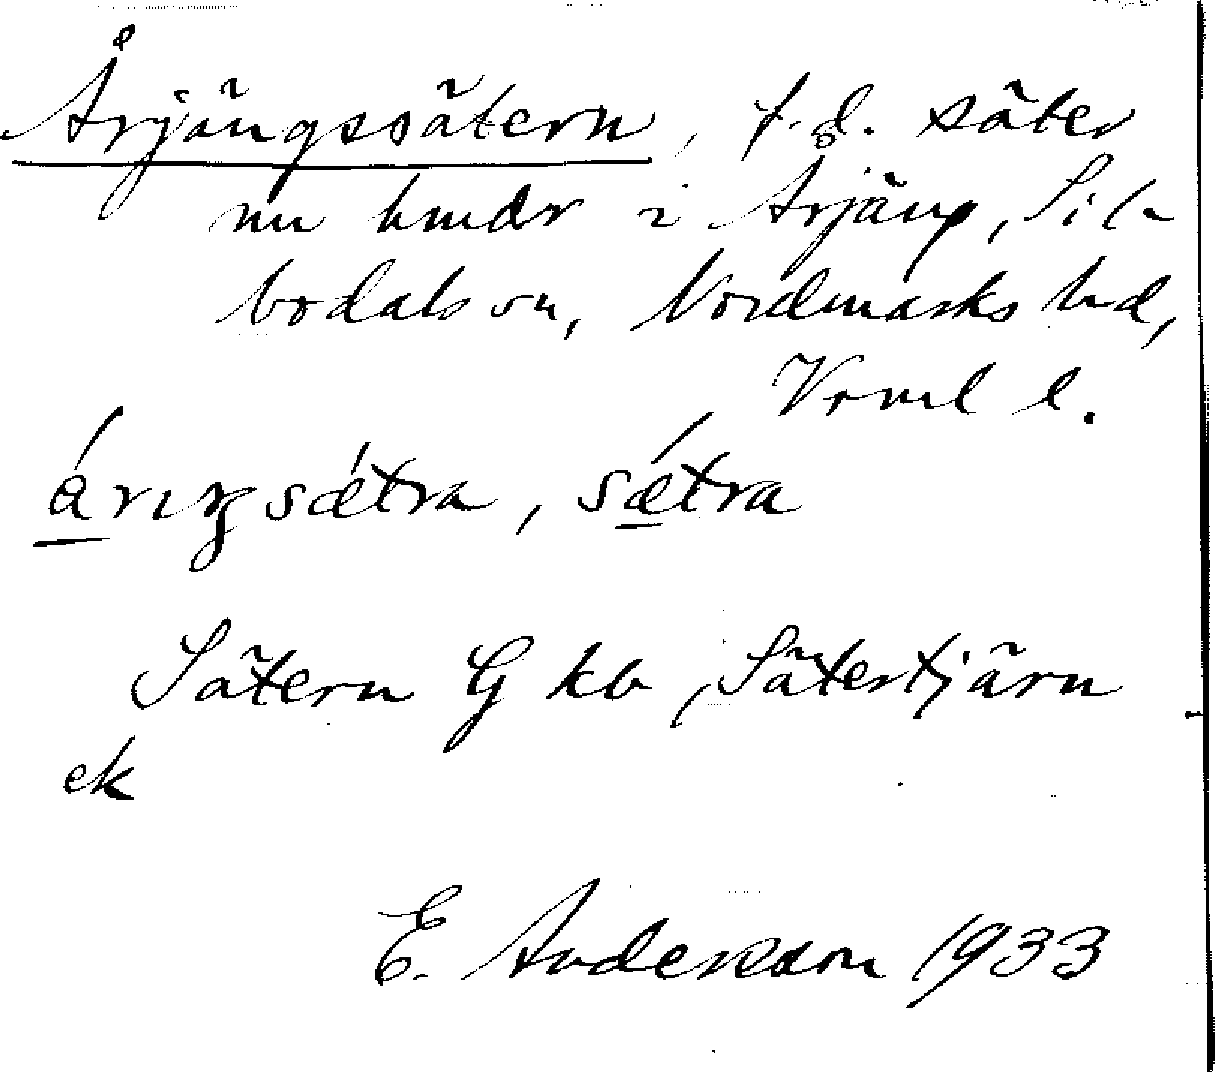 Årjängssätern, f.d. säter
nu hmdr i Årjäng, Sil-
bodals sn, Nordmarks hd,
Vrml l.
sǽtra
Sätern G kb, Sätertjärn
ek
E. Andersson 1933